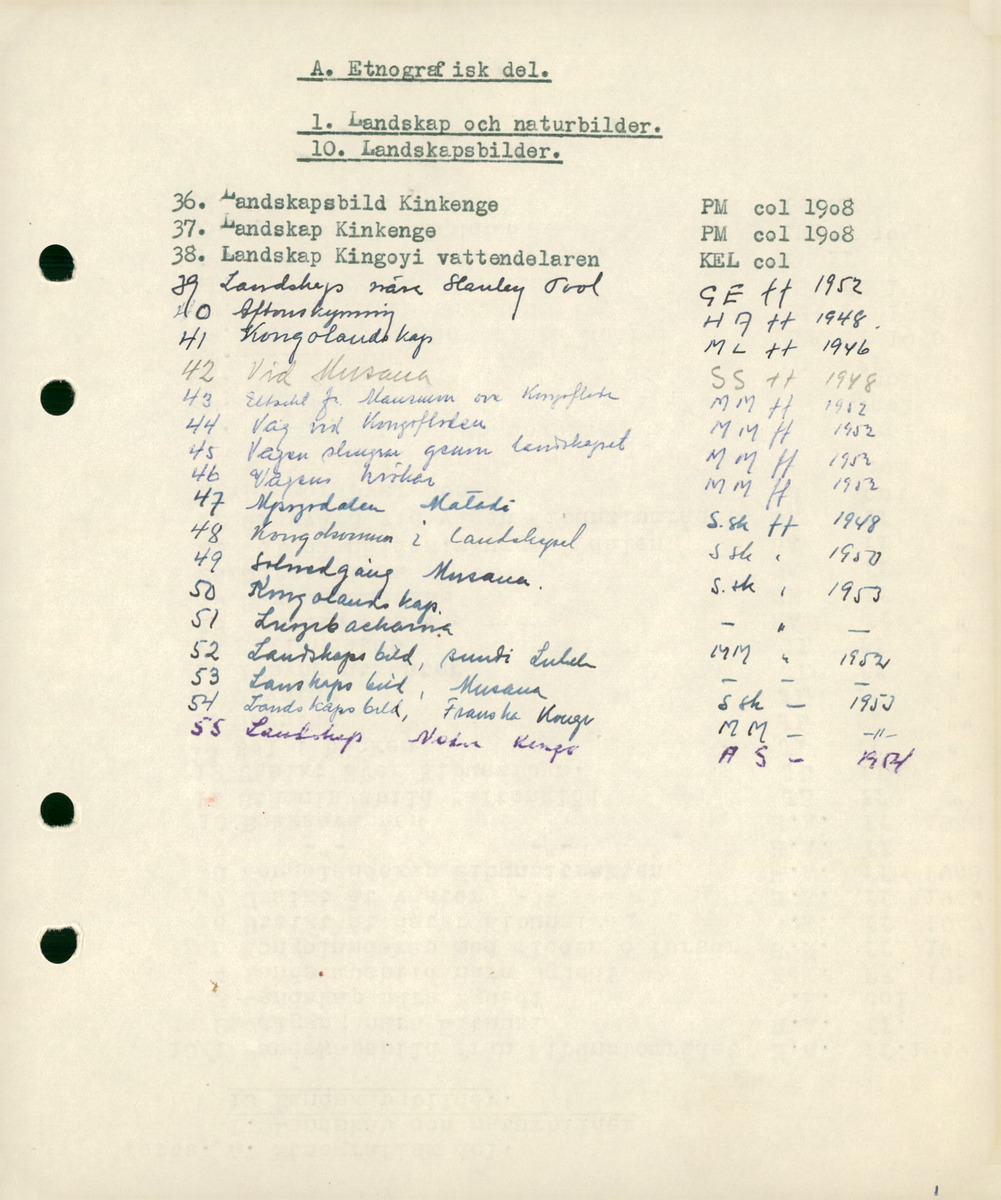 A. Etnografisk del.
1. Landskap och naturbilder.
10. Landskapsbilder.
36. Landskapsbild Kinkenge PM col 1908
37. Landskap Kinkenge PM col 1908
38. Landskap Kingoyi vattendelaren KEL col
39 Landskap nära Stanley Pool GE ff 1952
40 Aftonskymning HA ff 1948.
41 Kongolandskap ML ff 1946
42 Vid Musana SS ff 1948
43 fr. över Kongofloden MM ff 1952
44 Väg vid Kongofloden MM ff 1952
45 Vägen slingrar genom landskapet MM ff 1952
46 Vägens krökar MM ff 1952
47 Mpozodalen Matadi S.sk ff 1948
48 i landskapet S sk " 1950
49 Solnedgång Musana. S.sk " 1953
50 Kongolandskap. — " —
51 MM " 1952
52 Landskapsbild, sundi Lubela — " —
53 Lanskapsbild, Musana S sk — 1953
54 Landskapsbild, Franska Kongo MM — -"-
55 Landskap Nedre Kongo A S — 1954